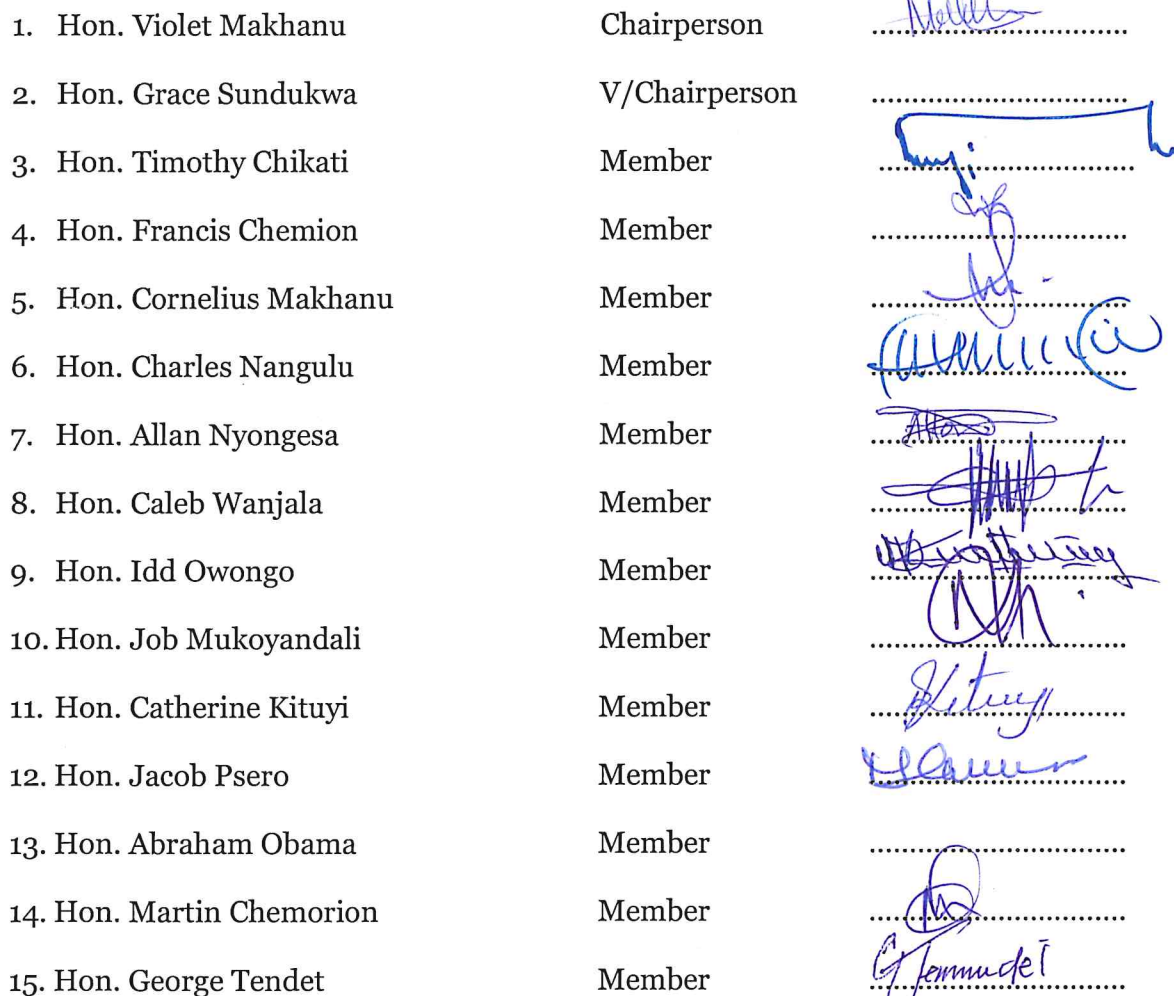 1. Hon. Violet Makhanu Chairperson ..............................
2. Hon. Grace Sundukwa V/Chairperson ..............................
3. Hon. Timothy Chikati Member ..............................
4. Hon. Francis Chemion Member ..............................
5. Hon. Cornelius Makhanu Member ..............................
6. Hon. Charles Nangulu Member ..............................
7. Hon. Allan Nyongesa Member ..............................
8. Hon. Caleb Wanjala Member ..............................
9. Hon. Idd Owongo Member ..............................
10. Hon. Job Mukoyandali Member ..............................
11. Hon. Catherine Kituyi Member ..............................
12. Hon. Jacob Psero Member ..............................
13. Hon. Abraham Obama Member ..............................
14. Hon. Martin Chemorion Member ..............................
15. Hon. George Tendet Member ..............................